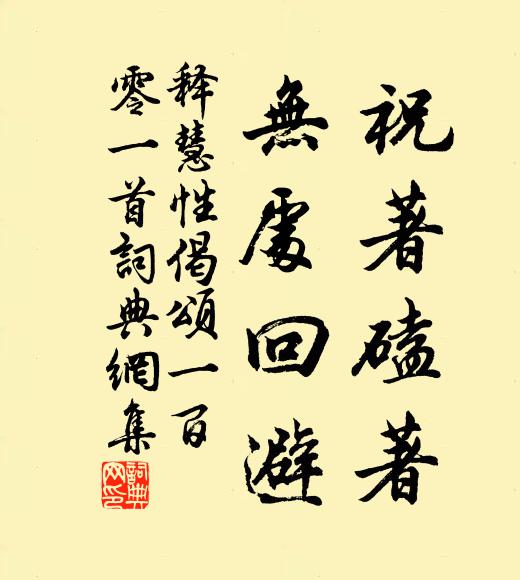 祝著磕著
無處回避
释慧性偈頌一百
零一首詞典網集
詞典网印